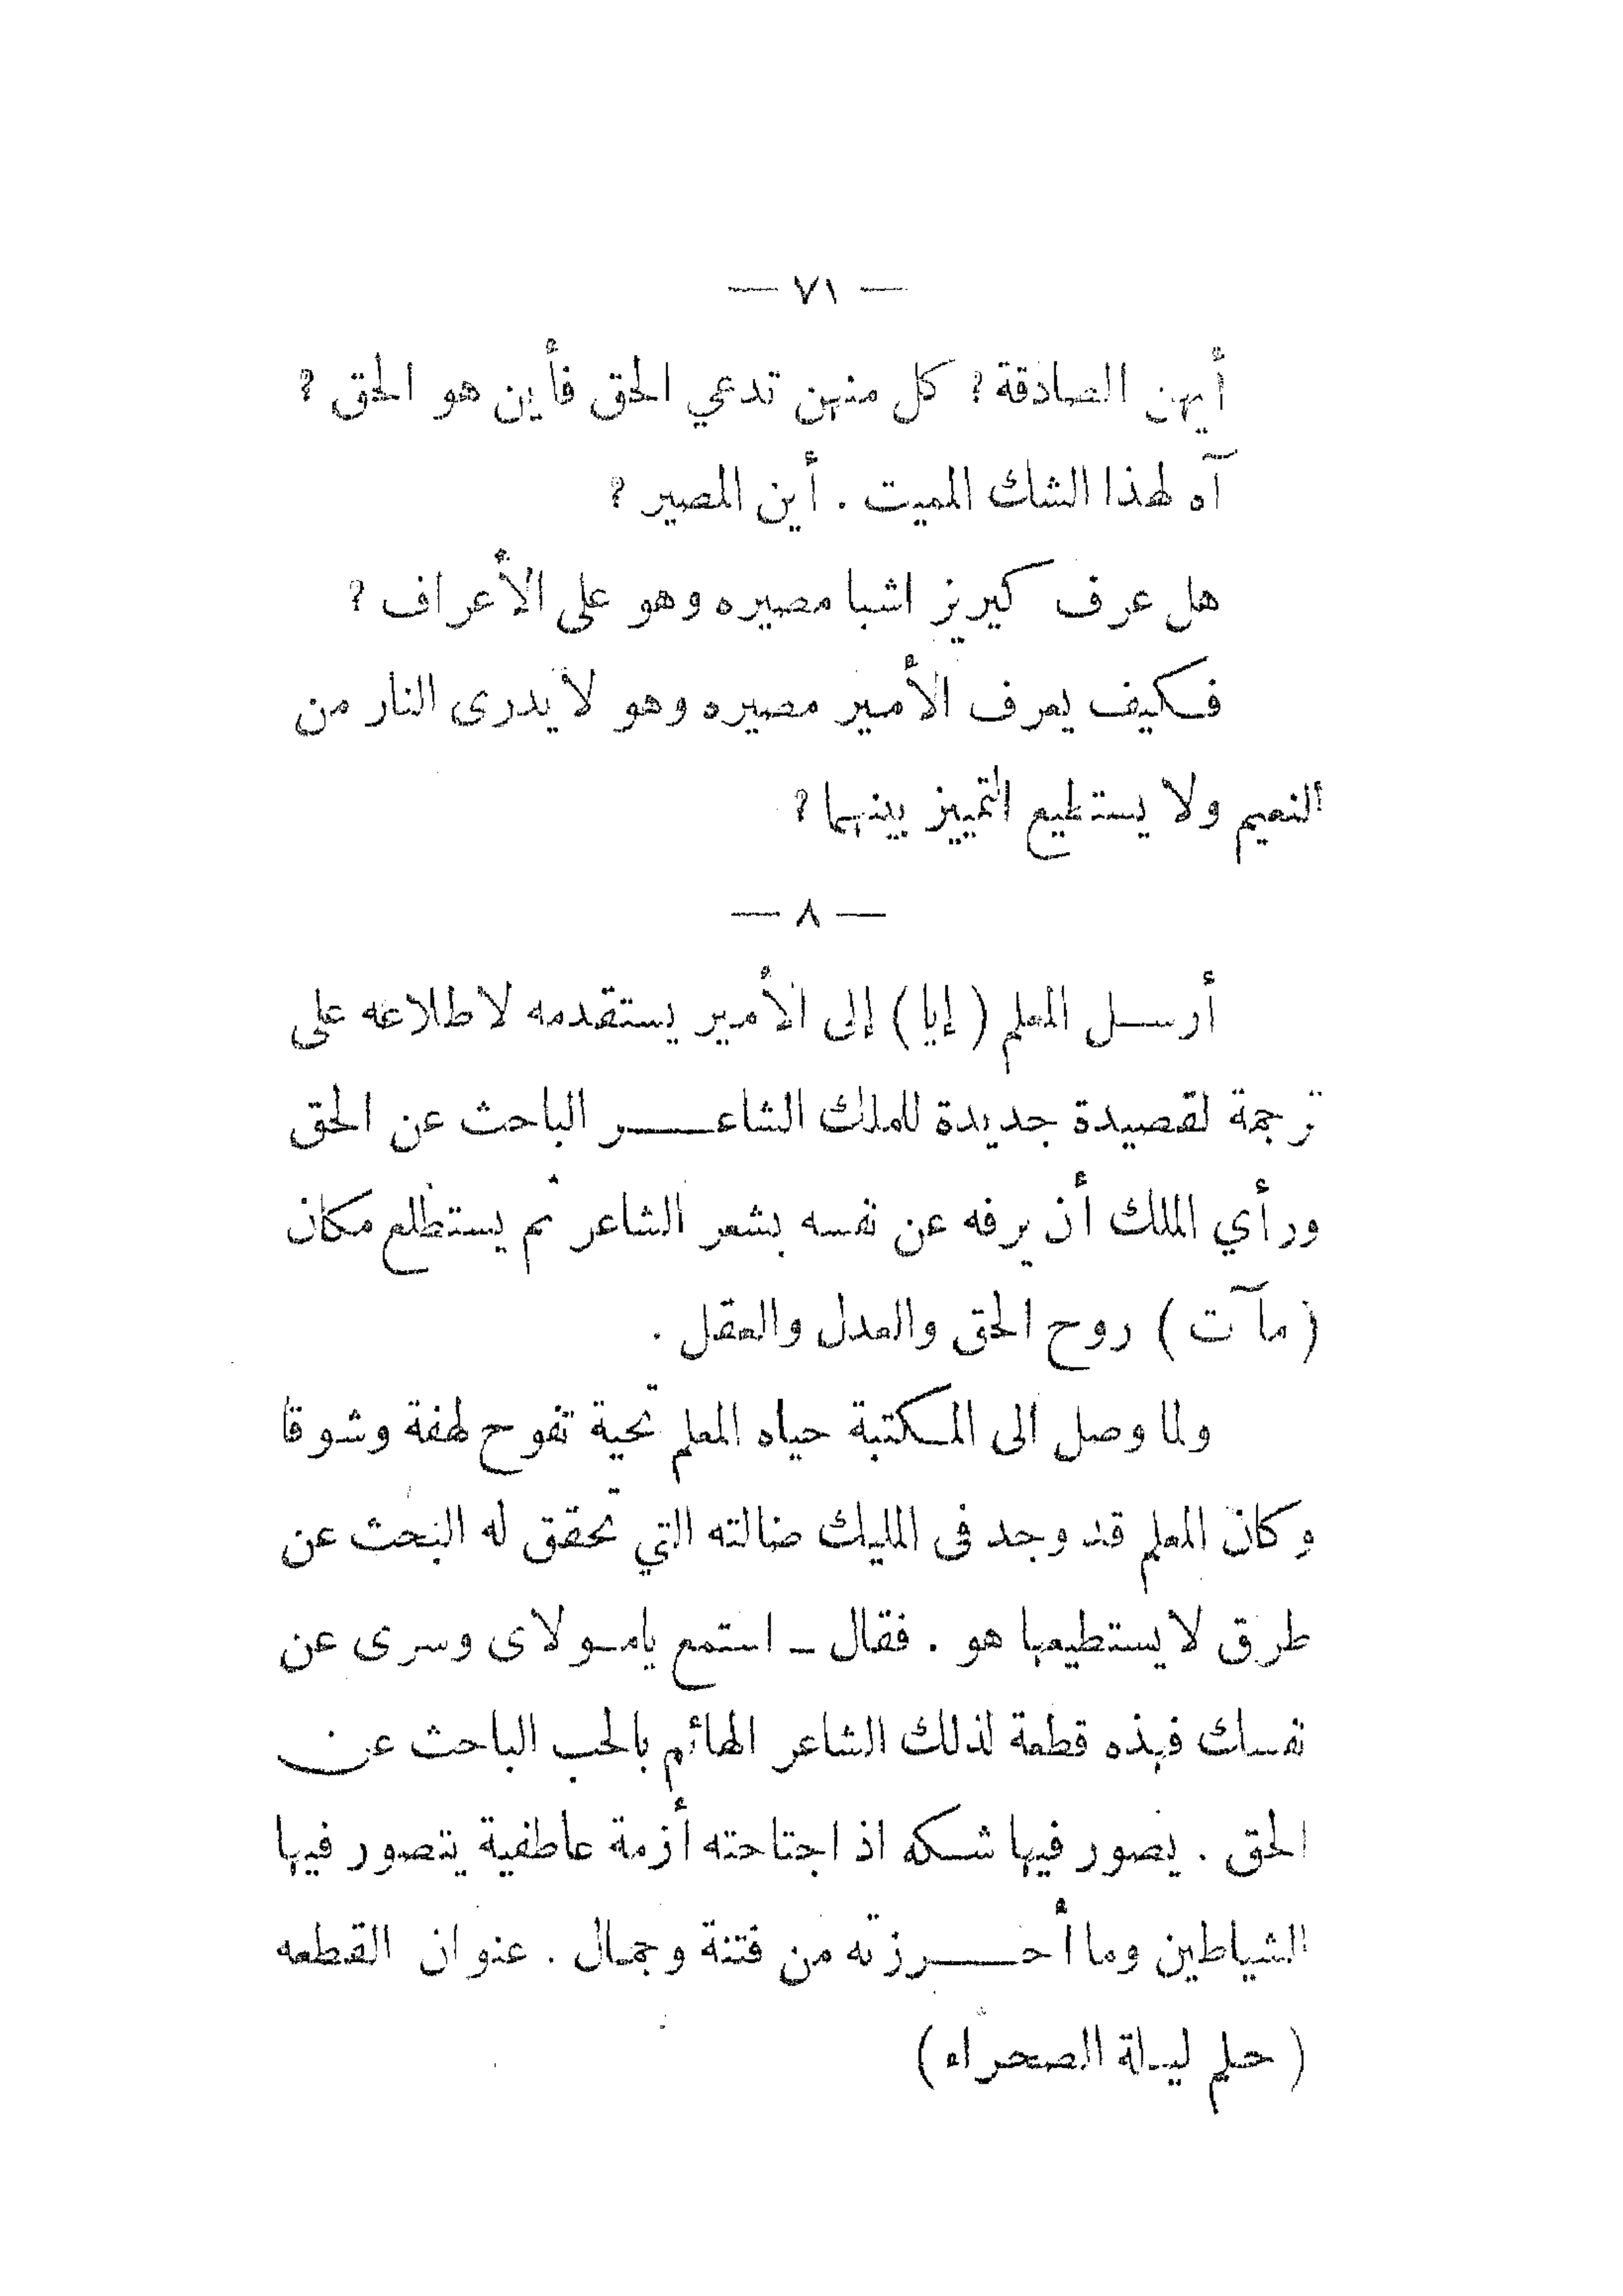 — ٧١ —
أيهن الصادقة؟ كل منهن تدعي الحق فأين هو الحق ؟
آه لهذا الشك المميت . أين المصير ؟
هل عرف كيريز اشبا مصيره وهو على الأعراف ؟
فكيف يعرف الأمير مصيره وهو لا يدرى النار من
النعيم ولا يستطيع التمييز بينهما ؟
— ٨ —
أرسل المعلم ( إيا ) إلى الأمير يستقدمه لاطلاعه على
ترجمة لقصيدة جديدة للملك الشاعر الباحث عن الحق
ورأي الملك أن يرفه عن نفسه بشعر الشاعر ثم يستطلع مكان
( مآت ) روح الحق والعدل والعقل .
ولما وصل الى المكتبة حياه المعلم تحية تفوح لهفة وشوقا
وكان المعلم قد وجد فى المليك ضالته التي تحقق له البحث عن
طرق لا يستطيعها هو . فقال ـ استمع يا مولاى وسرى عن
نفسك فهذه قطعة لذلك الشاعر الهائم بالحب الباحث عن
الحق . يصور فيها شكه اذ اجتاحته أزمة عاطفية يتصور فيها
الشياطين وما أحرزته من فتنة وجمال . عنوان القطعه
( حلم ليلة الصحراء )